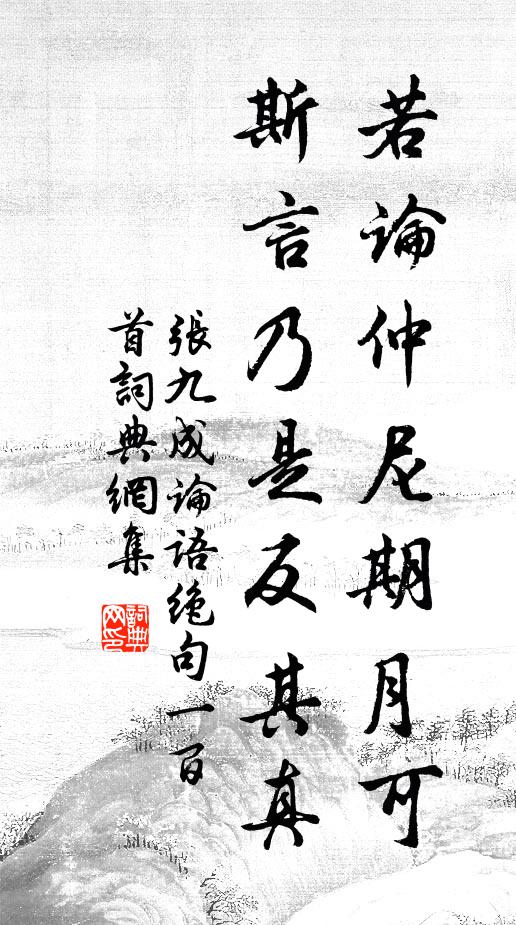 若論仲尼期月可
斯言乃是反其真
張九成論語绝句一百
首詞典網集
詞典網印